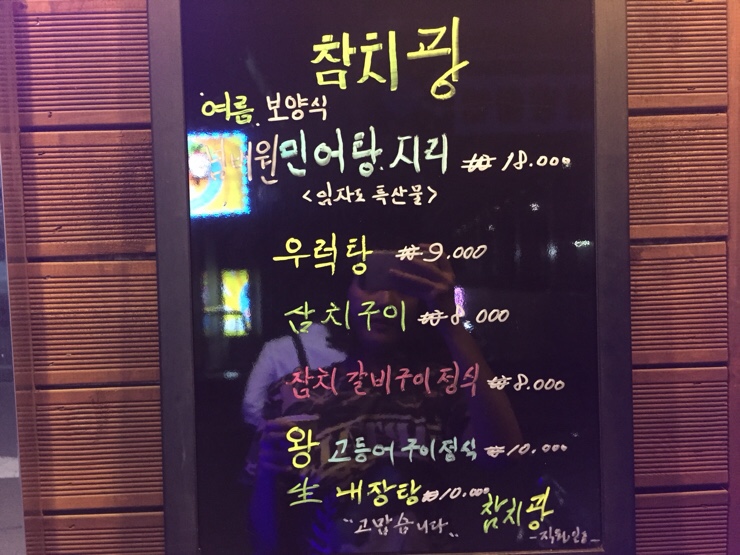 참치광
여름. 보양식
민어탕. 지리 ₩ 18.000
<임자도 특산물>
우럭탕 ₩ 9.000
삼치구이 ₩ 8.000
참치 갈비구이 정식 ₩ 8.000
왕 고등어 구이정식 ₩ 10.000
生 내장탕 ₩ 10.000
"고맙습니다" 참치광
-직원일동-